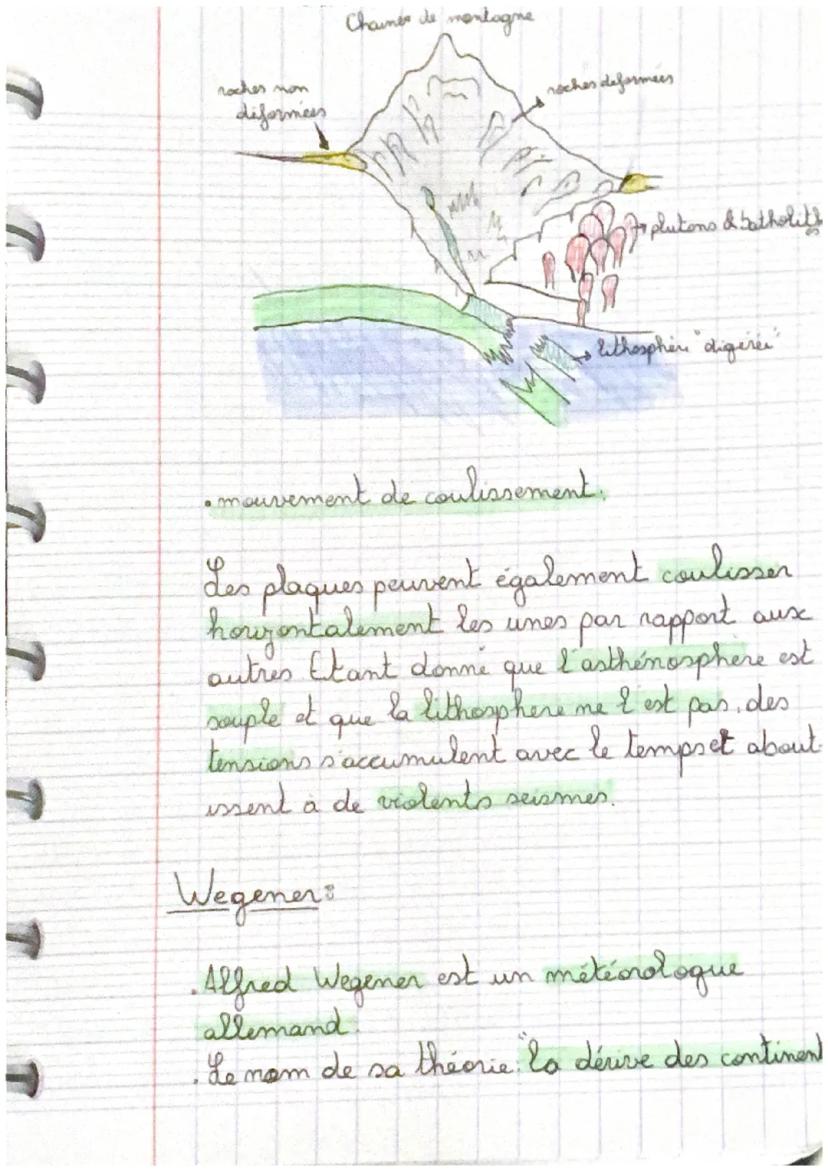 Chaines de montagne
roches non
déformées
roches deformées
plutons & batholith
es
lithosphère "digérée"
. mouvement de coulissement.
Les plaques peuvent également coulisser
horizontalement les unes par rapport aux
autres Etant donné que l'asthénosphère est
souple et que la lithosphere ne l'est pas, des
tensions s'accumulent avec le temps et about
issent à de violents seismes.
Wegener:
. Alfred Wegener est un météorologue
allemand.
. Le nom de sa théorie: "la dérive des continent